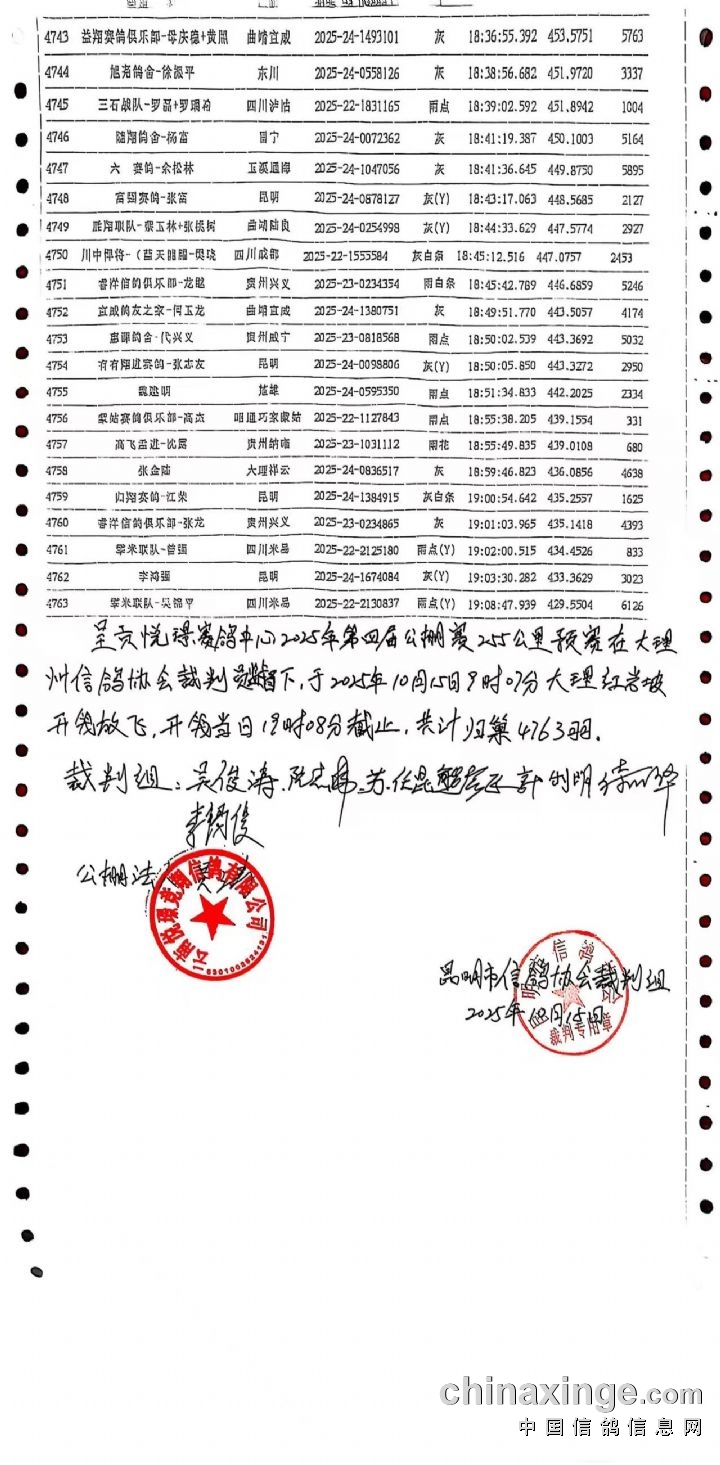 4743 益翔赛鸽俱乐部-母庆德+黄 曲靖宣威 2025-24-1493101 灰 18:36:55.392 453.5751 5763
4744 旭尧鸽舍-徐振平 东川 2025-24-0558126 灰 18:38:56.682 451.9720 3337
4745 三石战队-罗磊+罗 四川泸沽 2025-22-1831165 雨点 18:39:02.592 451.8942 1004
4746 翔鸽舍-杨富 2025-24-0072362 灰 18:41:19.387 450.1003 5164
4747 六 赛鸽-余松林 玉溪通海 2025-24-1047056 灰 18:41:36.645 449.8750 5895
4748 赛鸽-张富 昆明 2025-24-0878127 灰(Y) 18:43:17.063 448.5685 2127
4749 胜翔联队-蔡玉林+张树 曲靖陆良 2025-24-0254998 灰(Y) 18:44:33.629 447.5774 2927
4750 川中 四川成都 2025-22-1555584 灰白条 18:45:12.516 447.0757 2453
4751 睿洋信鸽俱乐部-龙 贵州兴义 2025-23-0234354 雨白条 18:45:42.789 446.6859 5246
4752 宣威鸽友之家-何玉龙 曲靖宣威 2025-24-1380751 灰 18:49:51.770 443.5057 4174
4753 鸽舍-代兴义 贵州威宁 2025-23-0818568 雨点 18:50:02.539 443.3692 5032
4754 有有翔进赛鸽-张志友 昆明 2025-24-0098806 灰(Y) 18:50:05.850 443.3272 2950
4755 明 楚雄 2025-24-0595350 雨点 18:51:34.833 442.2025 2334
4756 蒙姑赛鸽俱乐部-高杰 昭通巧家蒙姑 2025-22-1127843 雨点 18:55:38.205 439.1554 331
4757 高飞 贵州纳雍 2025-23-1031112 雨花 18:55:49.835 439.0108 680
4758 张金陆 大理祥云 2025-24-0836517 灰 18:59:46.823 436.0856 4638
4759 归翔赛鸽-江荣 昆明 2025-24-1384915 灰白条 19:00:54.642 435.2557 1625
4760 睿洋信鸽俱乐部-张龙 贵州兴义 2025-23-0234865 灰 19:01:03.965 435.1418 4393
4761 擎米联队-曾强 四川米易 2025-22-2125180 雨点(Y) 19:02:00.515 434.4526 833
4762 李鸿强 昆明 2025-24-1674084 灰(Y) 19:03:30.282 433.3629 3023
4763 擎米联队-吴锦平 四川米易 2025-22-2130837 雨点(Y) 19:08:47.939 429.5504 6126
呈贡悦璟赛鸽中心2025年第四届公棚赛255公里预赛在大理
州信鸽协会裁判员监督下,于2025年10月15日9时07分大理红岩坡
开笼放飞,开笼当日19时08分截止,共计归巢4763羽.
裁判组:吴俊涛
李 俊
公棚法
云南悦璟竞翔信鸽有限公司
昆明市信鸽协会裁判组
2025年10月15日
裁判专用章
chinaxinge.com
中国信鸽信息网